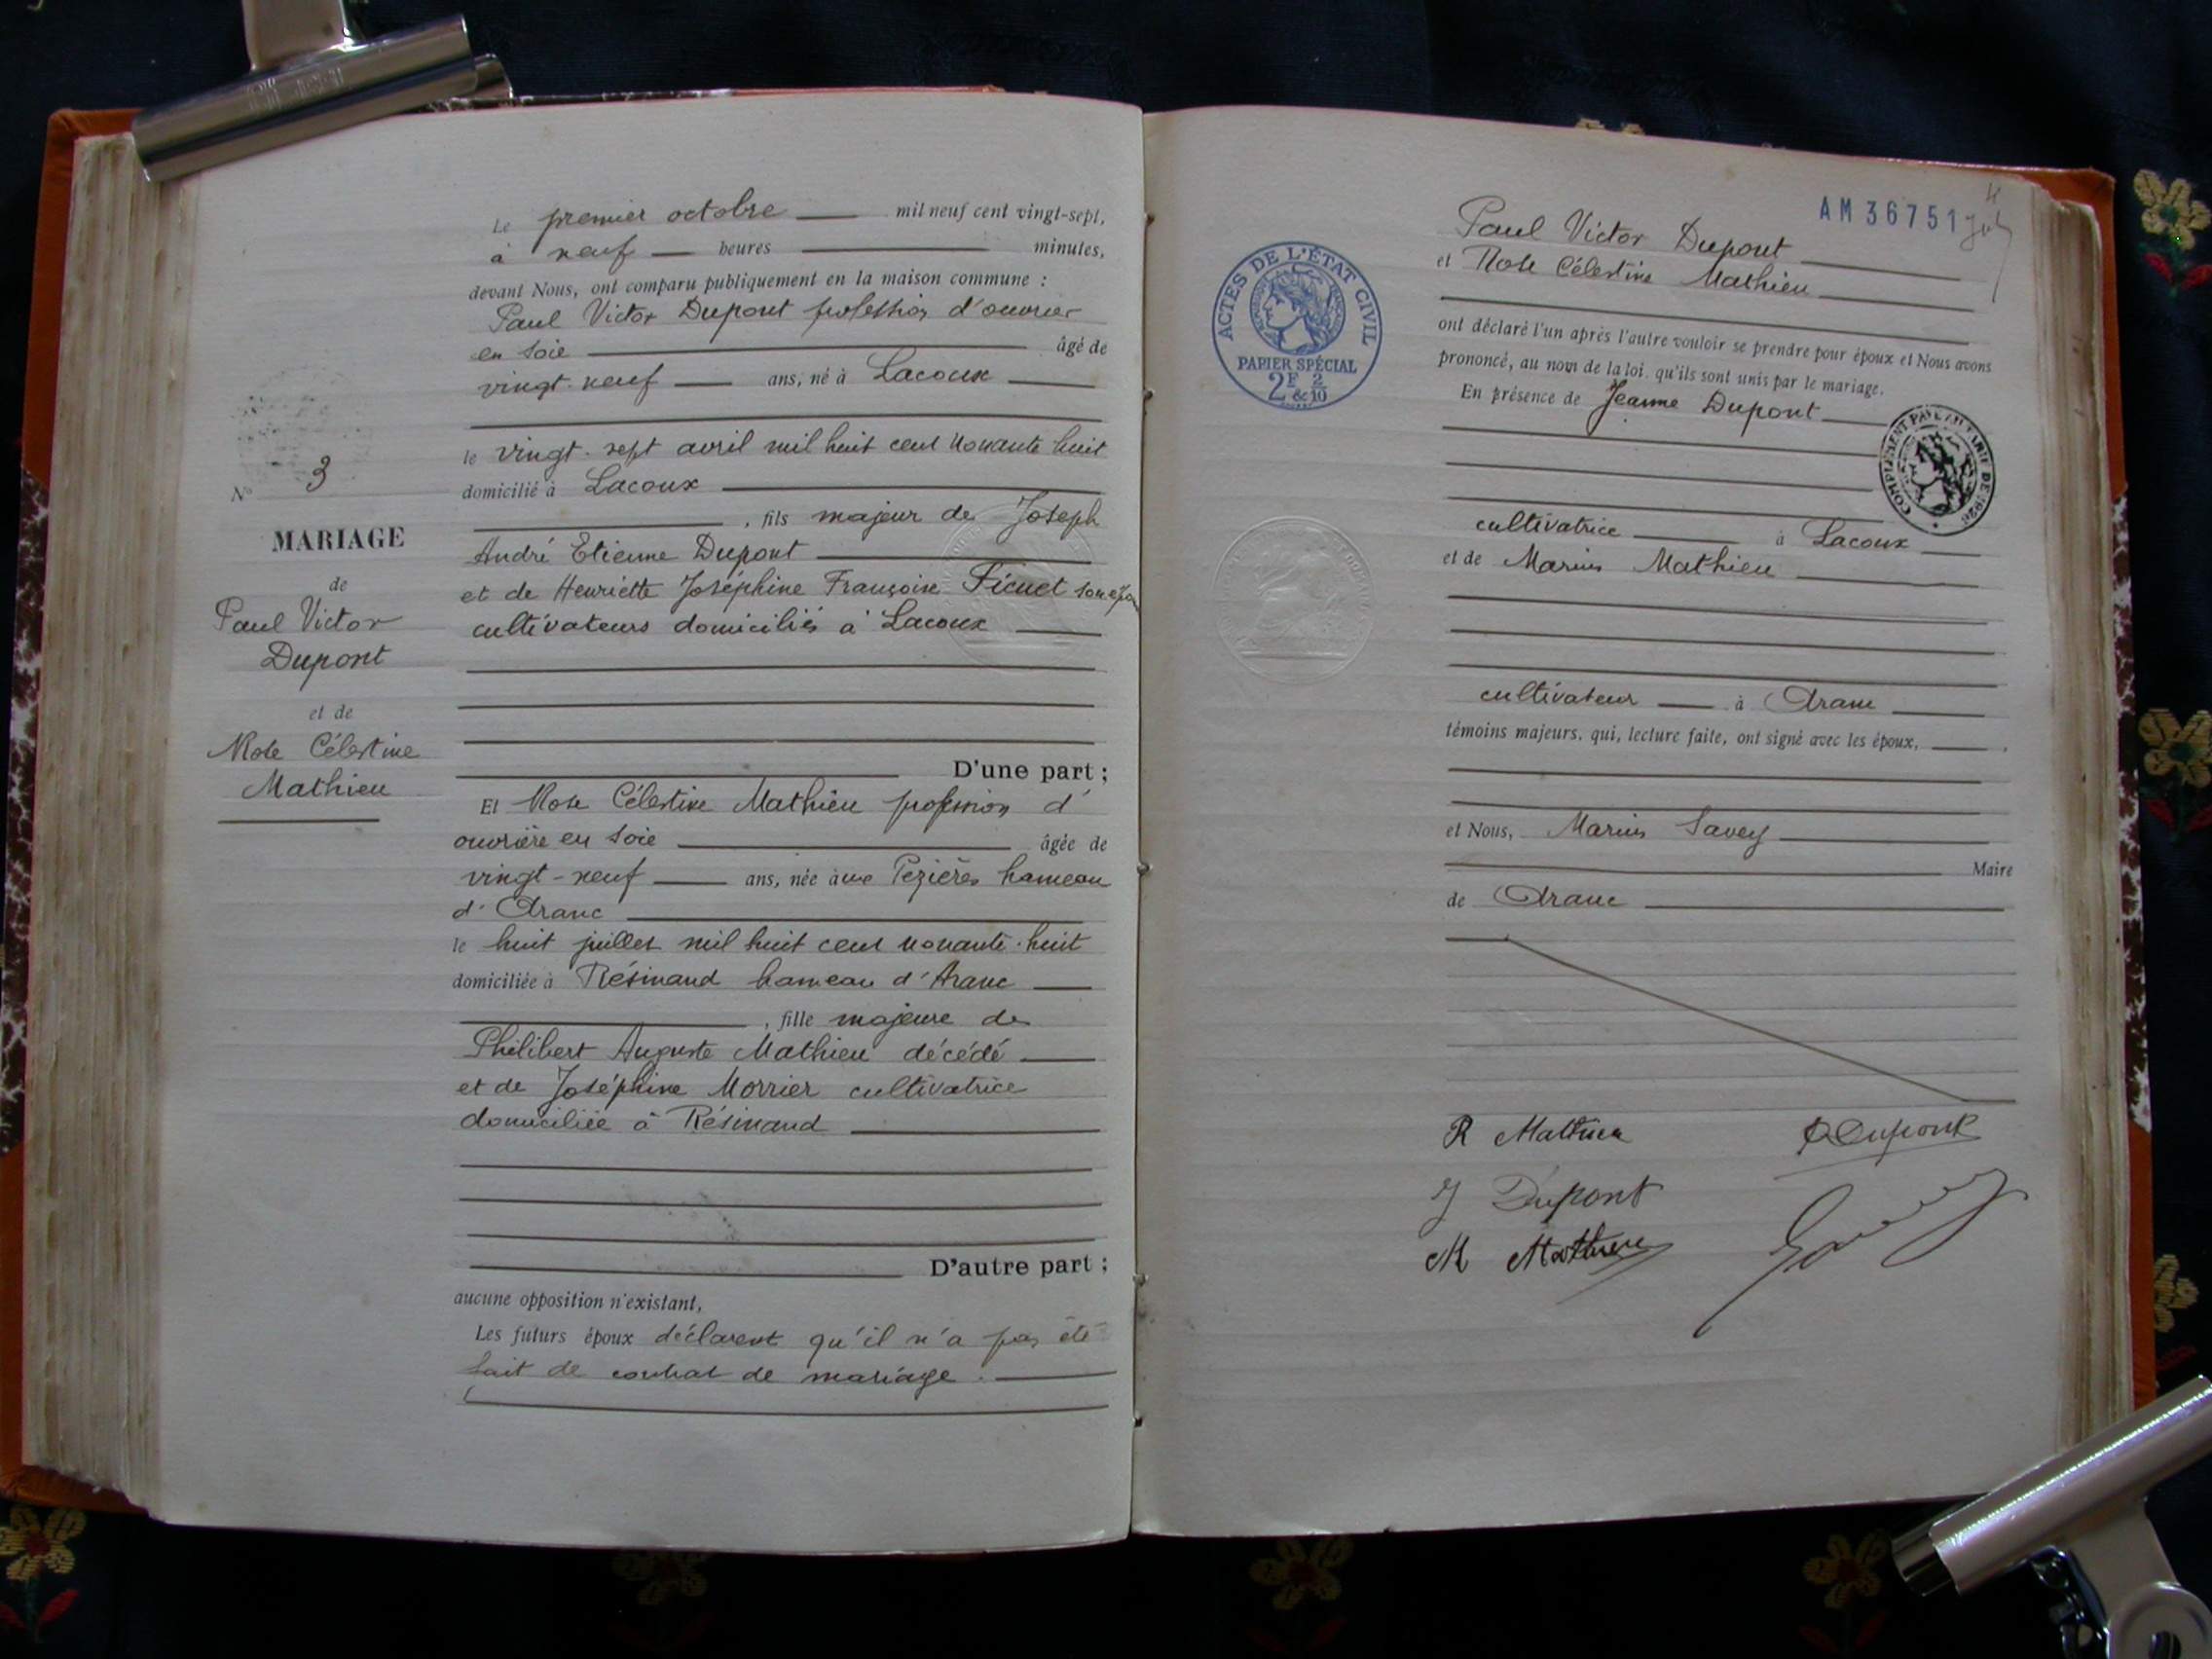 Le premier octobre mil neuf cent vingt-sept,
à neuf heures minutes,
devant Nous, ont comparu publiquement en la maison commune :
Paul Victor Dupont profession d'ouvrier
en soie âgé de
vingt-neuf ans, né à Lacoux
le vingt-sept avril mil huit cent nonante huit
domicilié à Lacoux
, fils majeur de Joseph
André Etienne Dupont
et de Henriette Joséphine Françoise son
cultivateurs domiciliés à Lacoux
D'une part ;
Et Rose Célestine Mathieu profession d'
ouvrière en soie âgée de
vingt-neuf ans, née à Pezières hameau
d'Aranc
le huit juillet mil huit cent nonante-huit
domiciliée à Résinand hameau d'Aranc
, fille majeure de
Philibert Auguste Mathieu décédé
et de Joséphine Morrier cultivatrice
domiciliée à Résinand
D'autre part ;
aucune opposition n'existant,
Les futurs époux déclarent qu'il n'a pas été
fait de contrat de mariage.
N° 3
MARIAGE
de
Paul Victor
Dupont
et de
Rose Célestine
Mathieu
AM 36751
Paul Victor Dupont
et Rose Célestine Mathieu
ont déclaré l'un après l'autre vouloir se prendre pour époux et Nous avons
prononcé, au nom de la loi, qu'ils sont unis par le mariage.
En présence de Jeanne Dupont
cultivatrice à Lacoux
et de Marius Mathieu
cultivateur à Aranc
témoins majeurs, qui, lecture faite, ont signé avec les époux,
et Nous, Marius Savey
Maire
de Aranc
R Mathieu
P Dupont
J Dupont
M Mathieu
ACTES DE L'ÉTAT CIVIL
PAPIER SPÉCIAL
2F & 2/10
COMPLÉMENT PAYÉ AU TARIF DE 1926